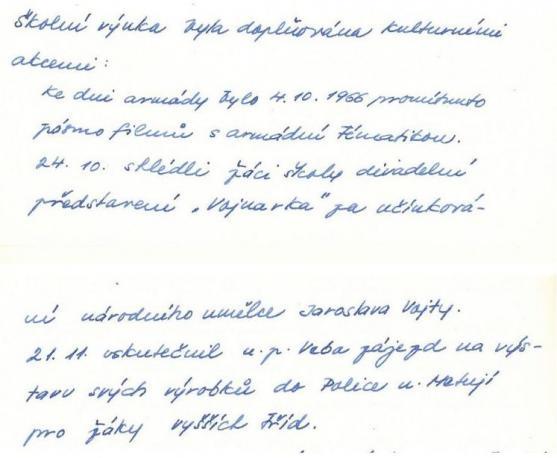 školní výuka byla doplňována kulturními
akcemi:
Ke dni armády bylo 4.10.1966 promítnuto
pásmo filmů s armádní tématikou.
24.10. shlédli žáci školy divadelní
představení „Vojnarka" za učinková-
ní národního umělce Jaroslava Vojty.
21.11. uskutečnil n.p. Veba zájezd na výs-
tavu svých výrobků do Police n. Metují
pro žáky vyšších tříd.